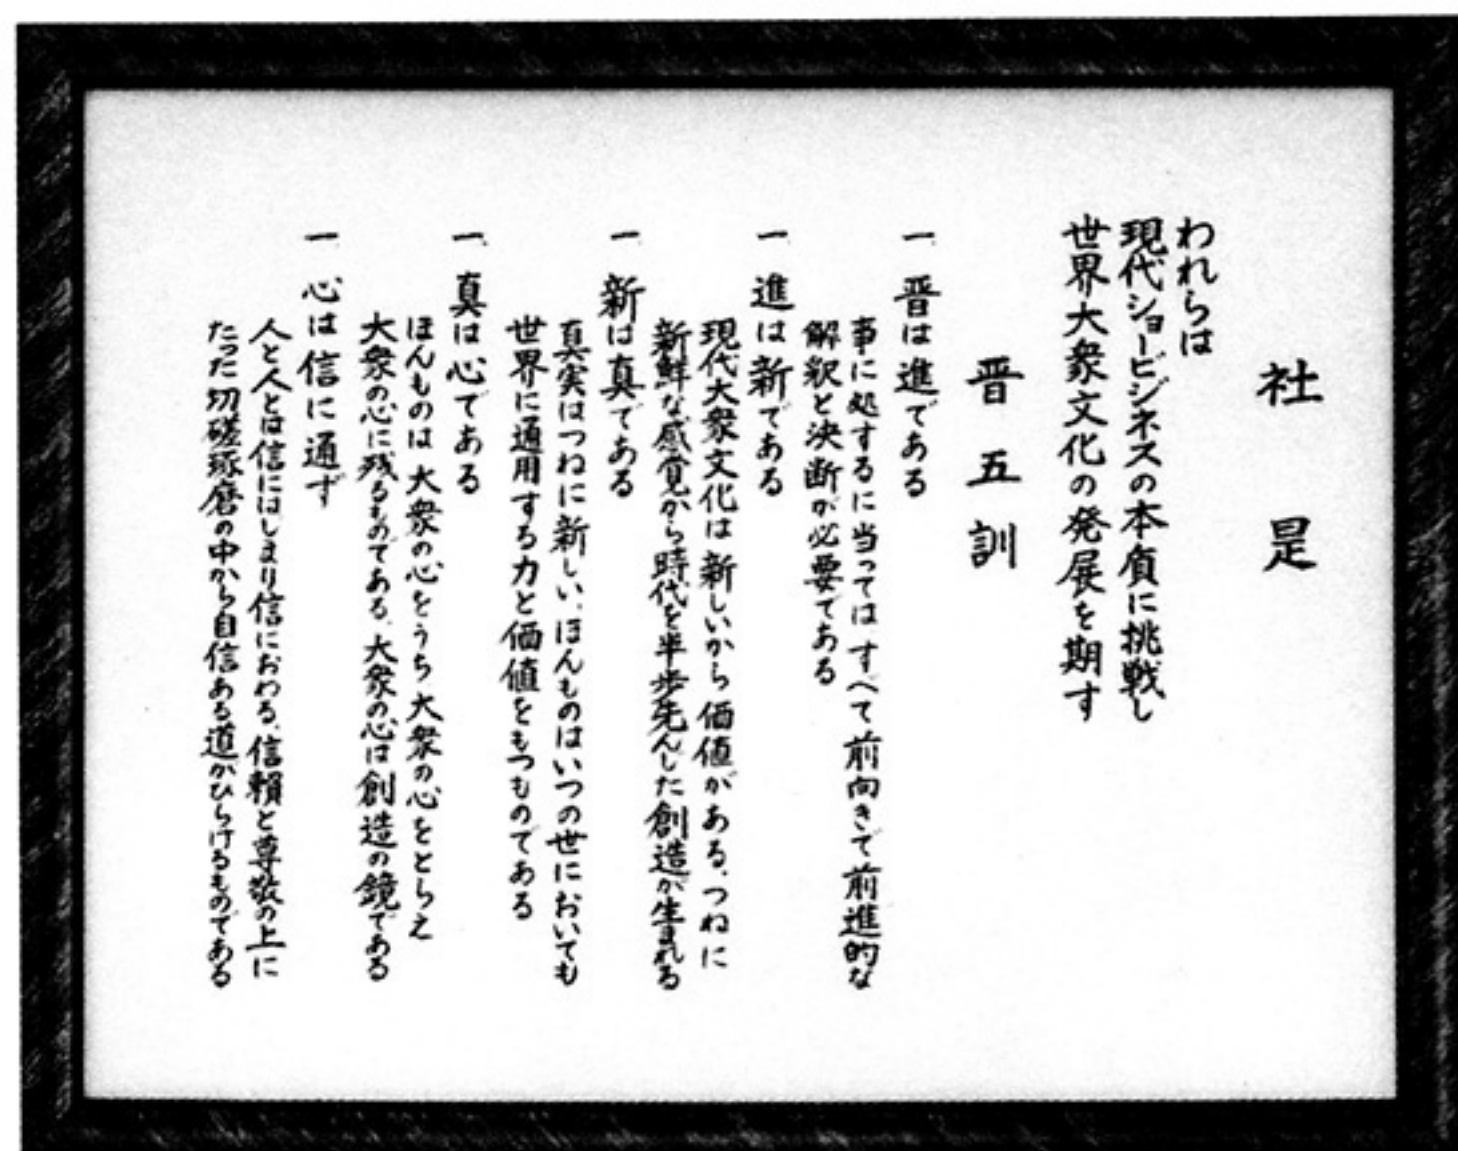 社是
われらは
現代ショービジネスの本質に挑戦し
世界大衆文化の発展を期す
晋五訓
一 晋は進である
事に処するに当っては すべて前向きで前進的な
解釈と決断が必要である
一 進は新である
現代大衆文化は 新しいから価値がある、つねに
新鮮な感覚から時代を半歩先んじた創造が生まれる
一 新は真である
真実はつねに新しい、ほんものはいつの世においても
世界に通用する力と価値をもつものである
一 真は心である
ほんものは 大衆の心をうち 大衆の心をとらえ
大衆の心に残るものである、大衆の心は創造の鏡である
一 心は信に通ず
人と人とは信にはじまり信におわる、信頼と尊敬の上に
たった切磋琢磨の中から自信ある道がひらけるものである